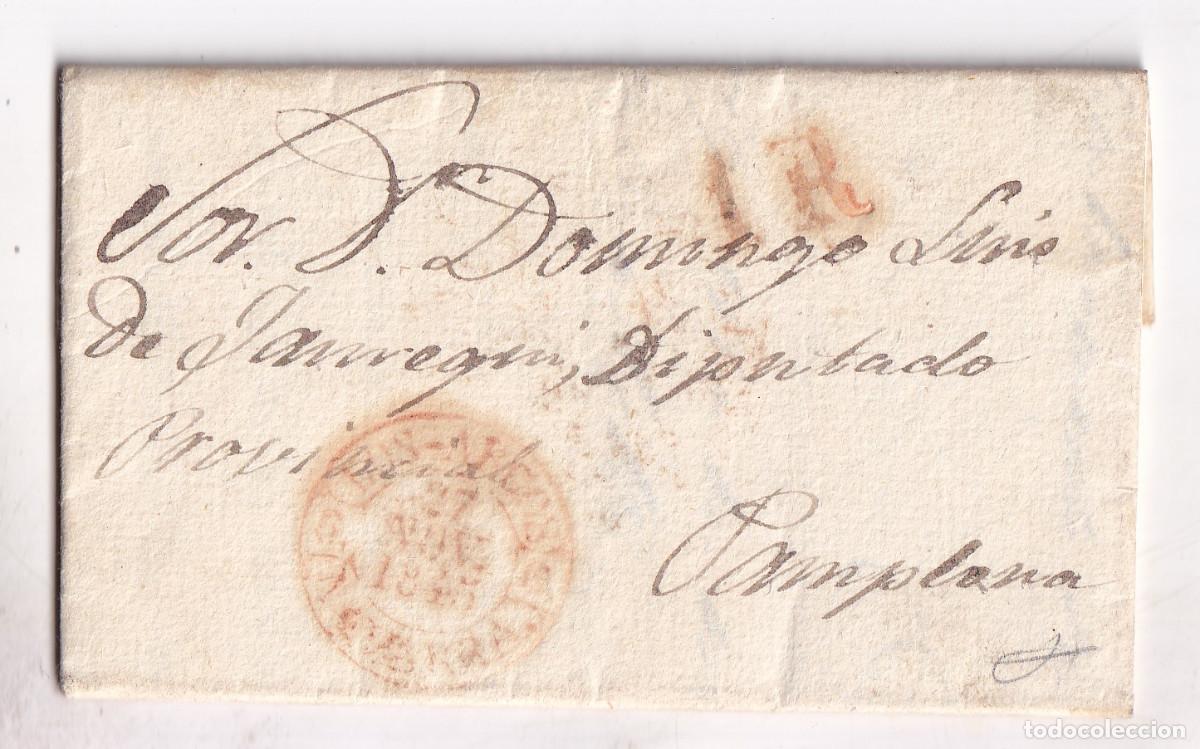 1R
Sor. D. Domingo Luis
de Jauregui, Diputado
Provincial
Pamplona
NAVARRA.
todocoleccion